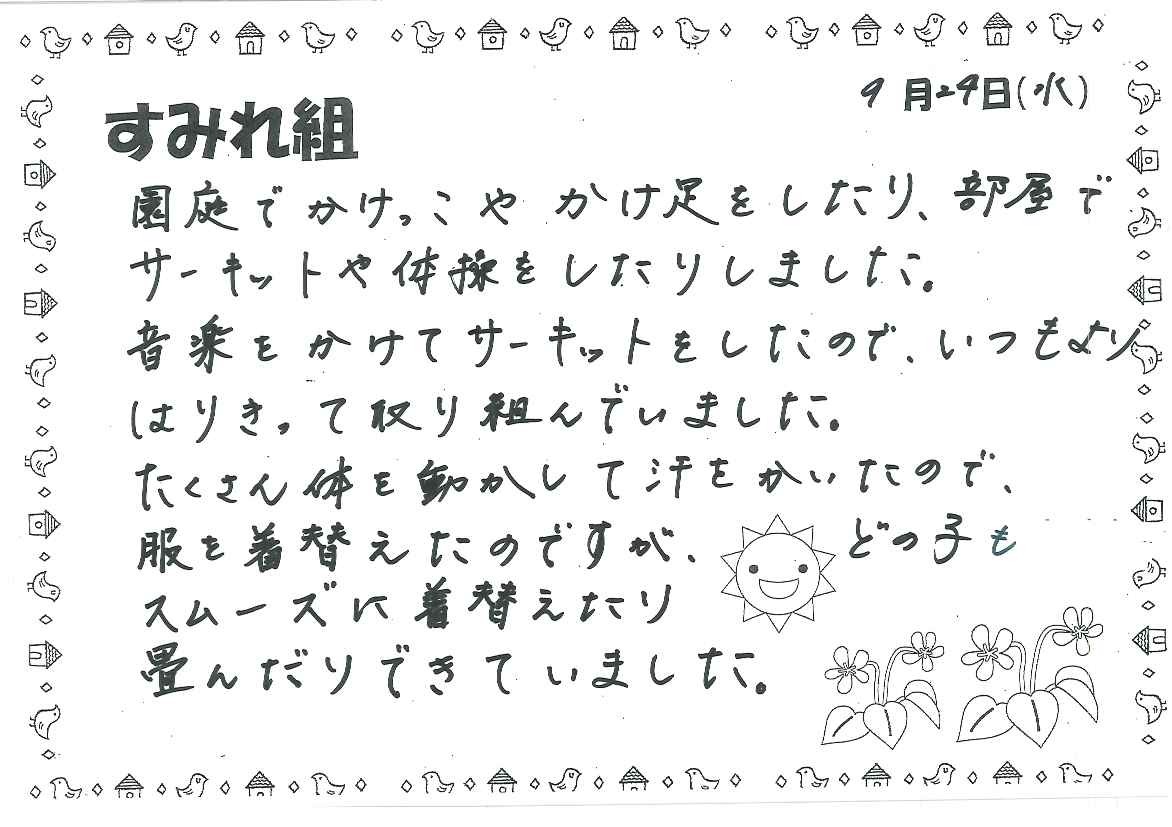 9月29日(水)
すみれ組
園庭でかけっこや かけ足をしたり、部屋で
サーキットや体操をしたりしました。
音楽をかけてサーキットをしたので、いつもより
はりきって取り組んでいました。
たくさん体を動かして汗をかいたので、
服を着替えたのですが、どの子も
スムーズに着替えたり
畳んだりできていました。